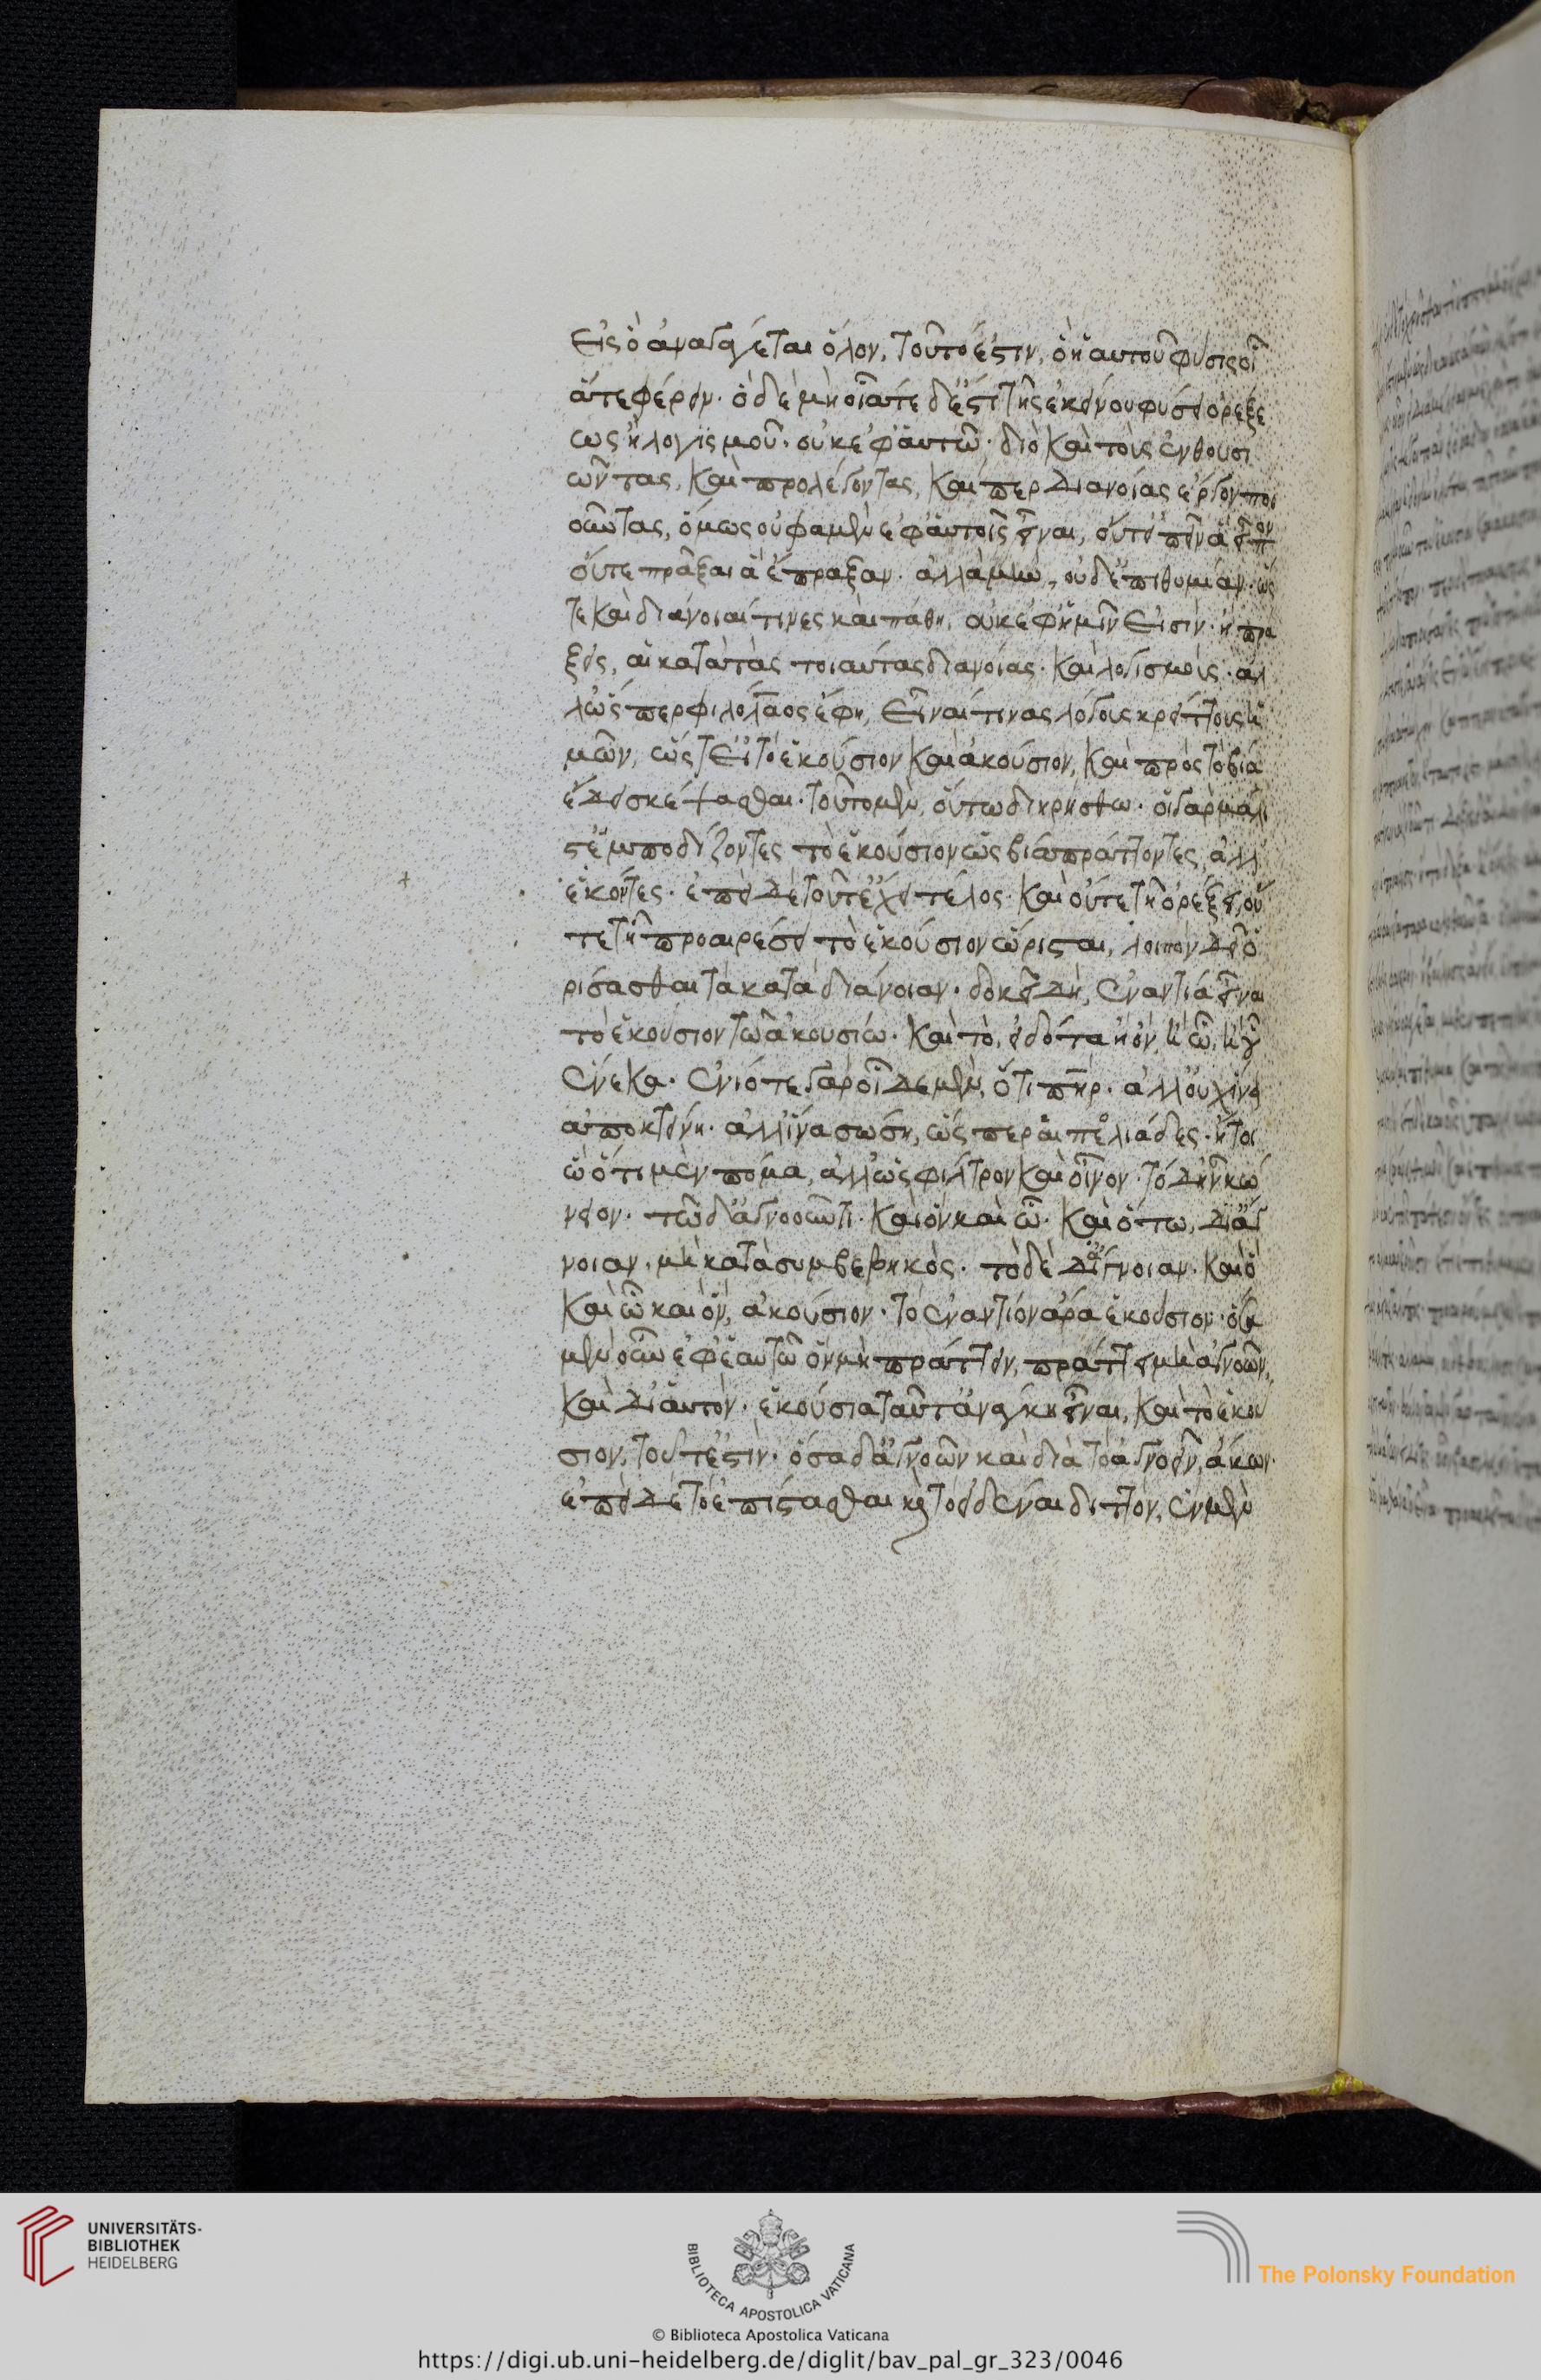 εἰς ὃ ἀνάγεται ὅλον, τοῦτο ἐστὶν, ὃ ἡ αὐτοῦ φύσις οἵ
ά τε φέρειν· ὃ δὲ μὴ οἵα τε δ' ἐστὶ τῆς ἐκείνου φύσει ὀρέξε
ως ἢ λογισμοῦ· οὐκ ἐφ' αὑτῶ· διὸ καὶ τοὺς ἐνθουσι
ῶντας, καὶ προλέγοντας, καίπερ διανοίας ἔργον ποι
οῦντας, ὅμως οὔ φαμεν ἐφ' αὑτοῖς εἶναι, οὔτ' εἰπεῖν ἃ εἶπον
οὔτε πρᾶξαι ἃ ἔπραξαν· ἀλλὰ μὴν, οὐδ' ἐπιθυμίαν· ὥς
τε καὶ διάνοιαί τινες καὶ πάθη, οὐκ ἐφ' ἡμῖν εἰσίν· ἢ πρα
ξεις, αἱ κατὰ τὰς τοιαύτας διανοίας· καὶ λογισμοὺς· ἀλ
λ' ὥσπερ φιλόλαος ἔφη, εἶναί τινας λόγους κρείττους ἡ
μῶν, ὥς τ' εἰ τὸ ἑκούσιον καὶ ἀκούσιον, καὶ πρὸς τὸ βία
ἔδει σκέψασθαι· τοῦτο μὲν, οὕτω διηρήσθω· οἱ γὰρ μάλι
στ' ἐμποδίζοντες τὸ ἑκούσιον ὡς βία πράττοντες, ἀλλ'
ἑκόντες· ἐπεὶ δὲ τοῦτ' ἔχει τέλος· καὶ οὔτε τῆ ὀρέξει, οὔ
τε τῆ προαιρέσει τὸ ἑκούσιον ὥρισται, λοιπὸν δὴ ὁ
ρίσασθαι τὰ κατὰ διάνοιαν· δοκεῖ δὴ, ἐναντία εἶναι
τὸ ἑκούσιον τῶ ἀκουσίω· καὶ τὸ, εἰδότα ἢ ὃν, ἢ ὧ, ἢ οὗ
ἕνεκα· ἐνίοτε γὰρ οἶδε μὲν, ὅτι πῆρ· ἀλλ' οὐχ ἵνα
ἀποκτείνη· ἀλλ' ἵνα σώση, ὥσπερ αἱ πελιάδες· ἤτοι
ὡς ὅτι μὲν πόμα, ἀλλ' ὡς φίλτρον καὶ οἶνον· τὸ δ' ἦν κώ
νειον· τῶ δ' ἀγνοοῦντι· καὶ ὃν καὶ ὧ· καὶ ὅτω, δι' ἄγ
νοιαν, μὴ κατὰ συμβεβηκὸς· τὸ δὲ δι' ἄγνοιαν· καὶ ὃ
καὶ ὧ καὶ ὃν, ἀκούσιον· τὸ ἐναντίον ἄρα ἑκούσιον· ὅσα
μὲν οὖν ἐφ' ἑαυτῶ ὂν μὴ πράττειν, πράττει μὴ ἀγνοῶν,
καὶ δι' αὑτόν· ἑκούσια ταῦτ' ἀνάγκη εἶναι, καὶ τὸ ἑκού
σιον, τοῦτ' ἐστὶν· ὅσα δ' ἀγνοῶν καὶ διὰ τὸ ἀγνοεῖν, ἄκων·
ἐπεὶ δὲ τὸ ἐπίστασθαι καὶ τὸ εἰδέναι διττόν, ἓν μὲν
© Biblioteca Apostolica Vaticana
UNIVERSITÄTS-
BIBLIOTHEK
HEIDELBERG
BIBLIOTECA APOSTOLICA VATICANA
The Polonsky Foundation
https://digi.ub.uni-heidelberg.de/diglit/bav_pal_gr_323/0046